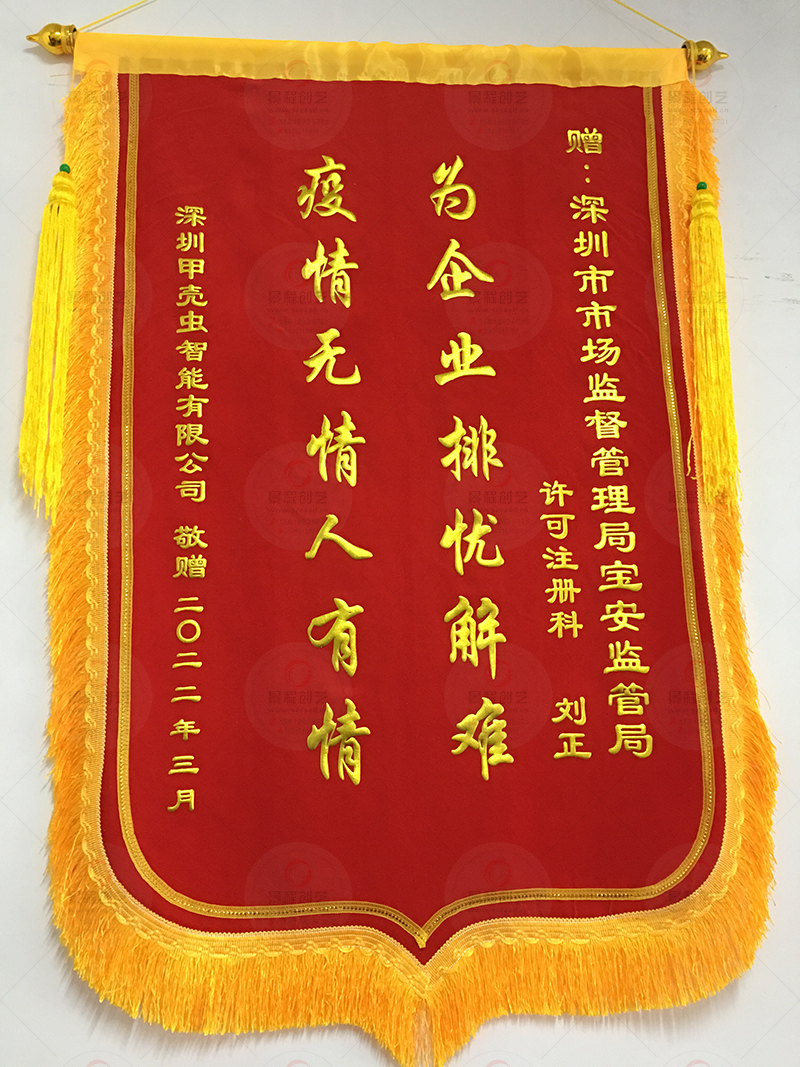 赠：深圳市市场监督管理局宝安监管局
许可注册科 刘正
为企业排忧解难
疫情无情人有情
深圳甲壳虫智能有限公司 敬赠 二〇二二年三月
景程创艺